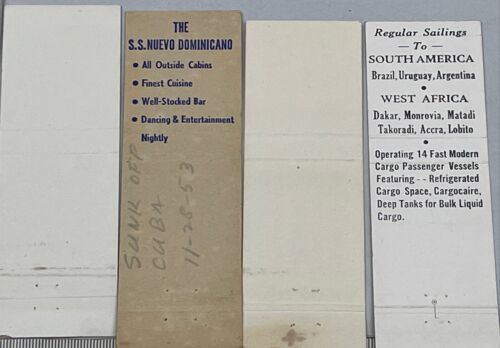 THE
S.S.NUEVO DOMINICANO
• All Outside Cabins
• Finest Cuisine
• Well-Stocked Bar
• Dancing & Entertainment
Nightly
SUNK OFF
CUBA
11-28-53
Regular Sailings
— To —
SOUTH AMERICA
Brazil, Uruguay, Argentina
•
WEST AFRICA
Dakar, Monrovia, Matadi
Takoradi, Accra, Lobito
•
Operating 14 Fast Modern
Cargo Passenger Vessels
Featuring -- Refrigerated
Cargo Space, Cargocaire,
Deep Tanks for Bulk Liquid
Cargo.